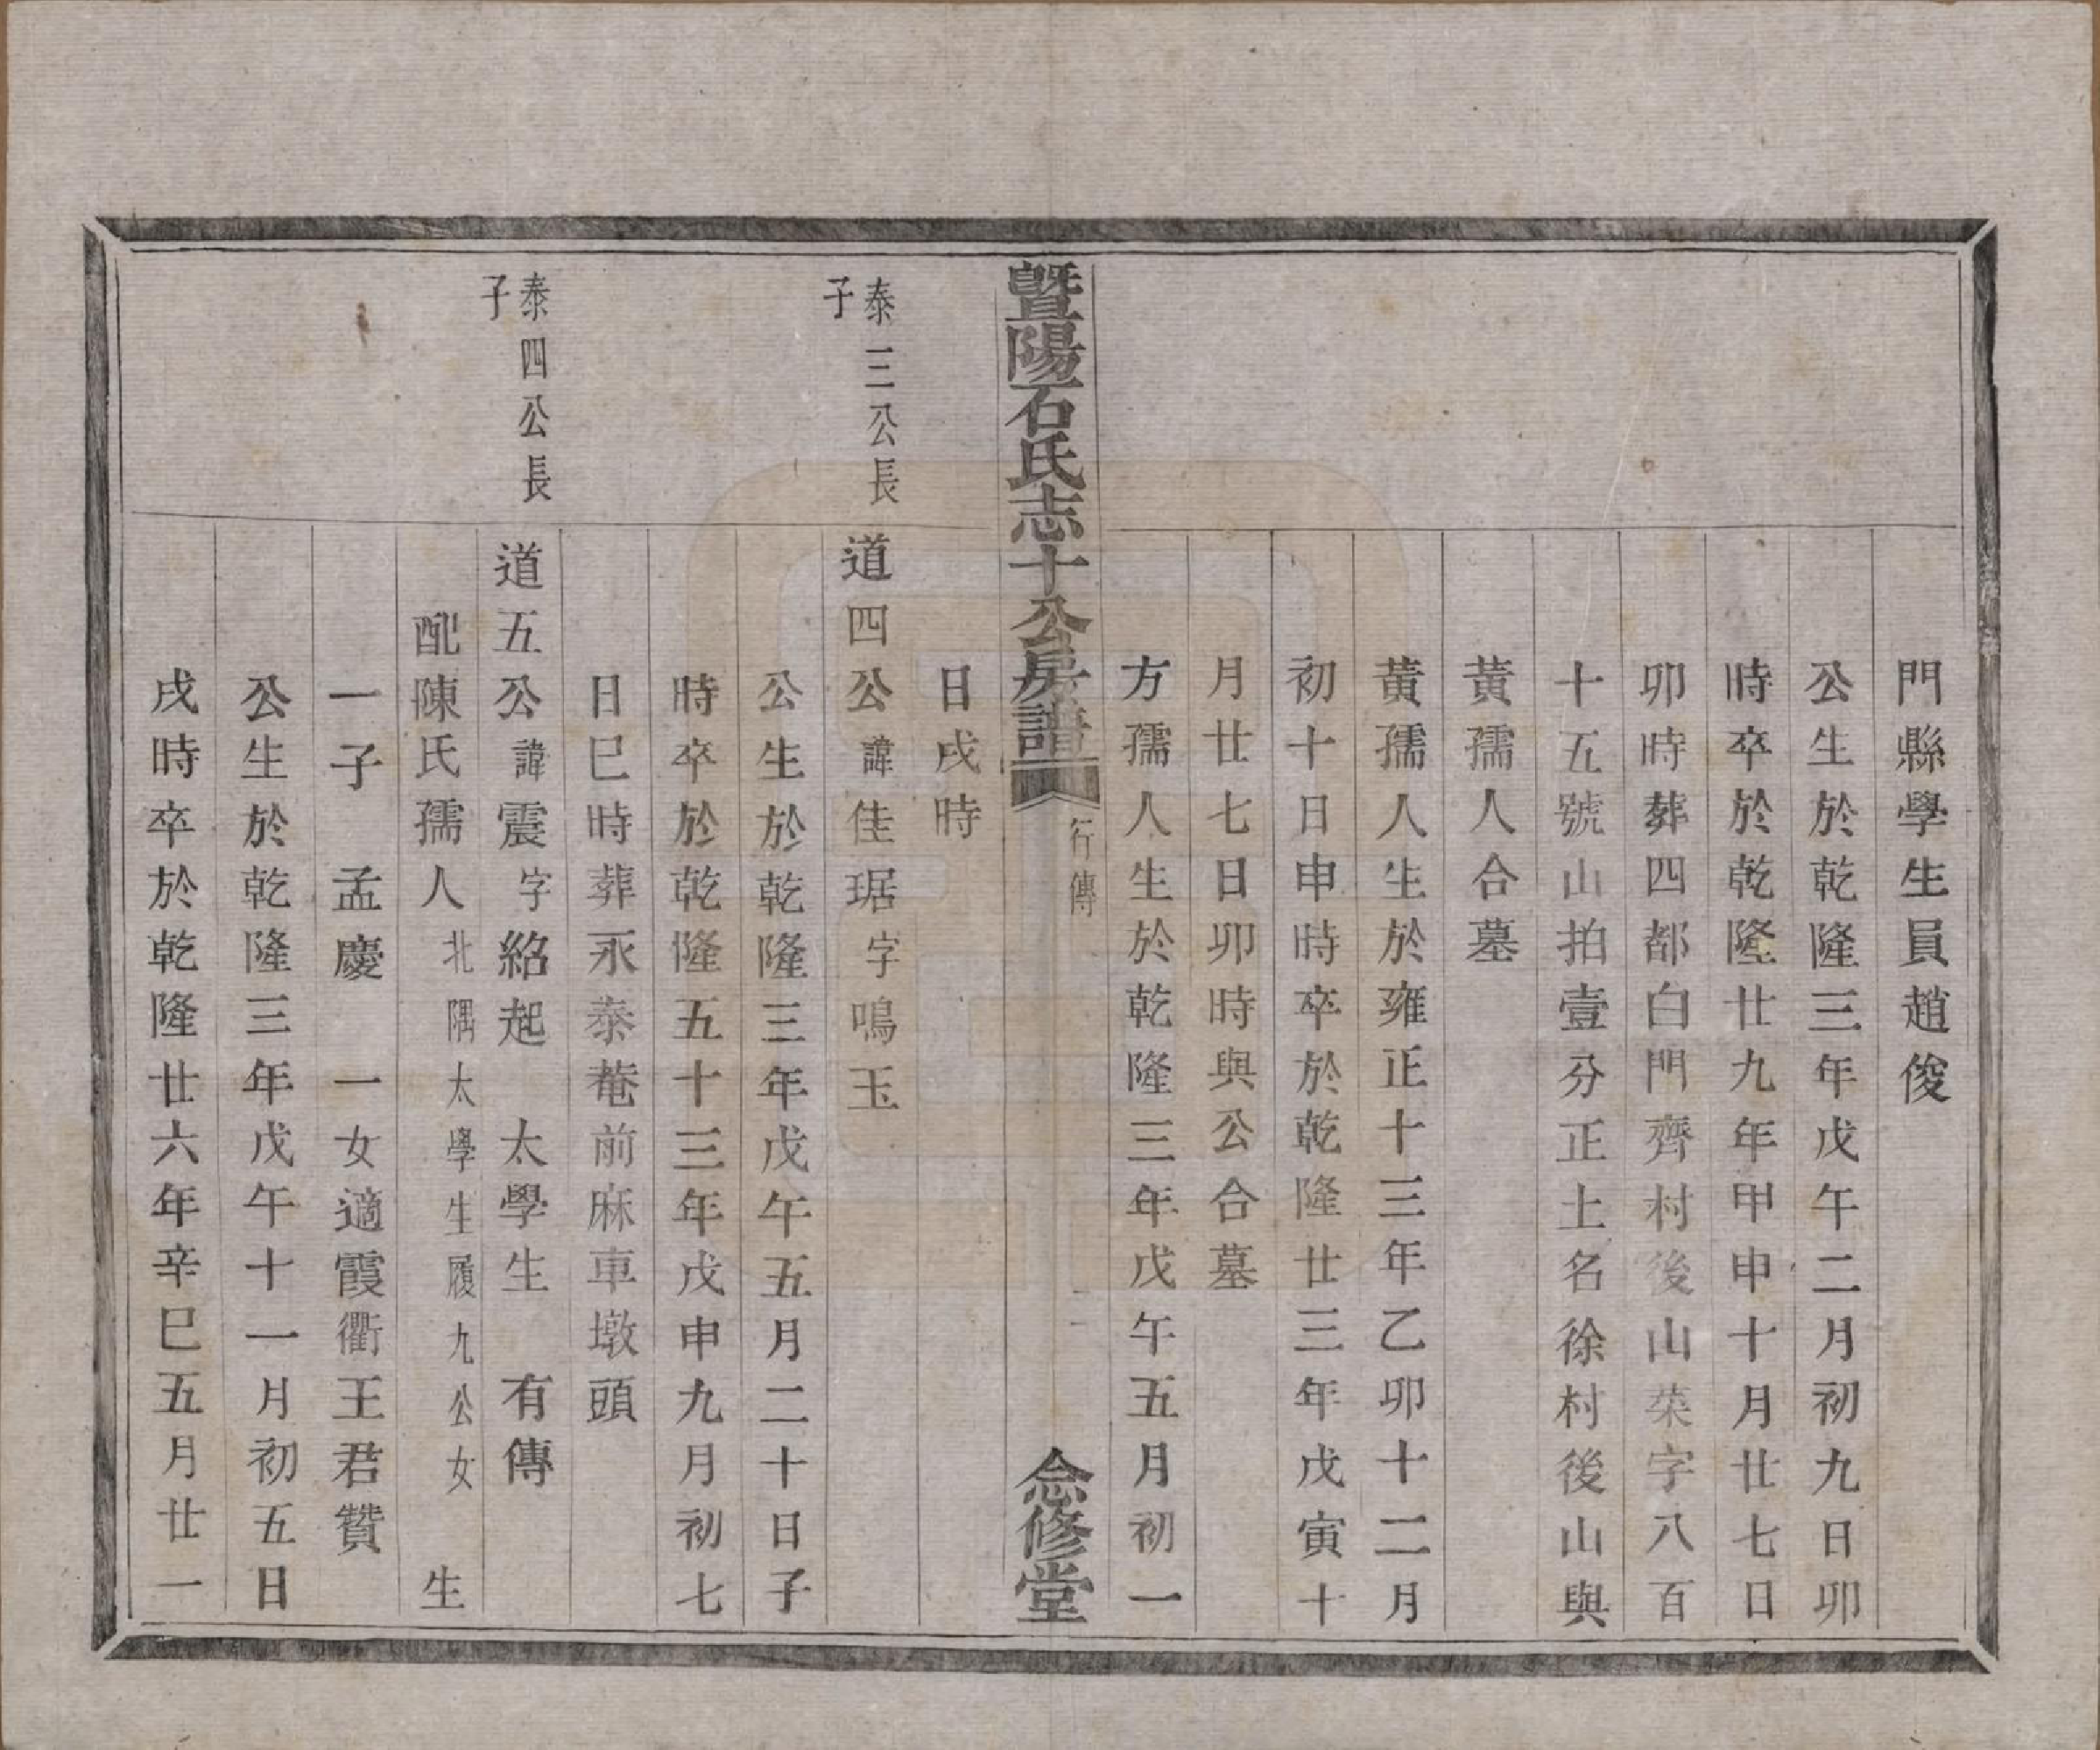 門縣學生員趙俊
公生於乾隆三年戊午二月初九日卯
時卒於乾隆廿九年甲申十月廿七日
卯時葬四都白門齊村後山菜字八百
十五號山拍壹分正土名徐村後山與
黃孺人合墓
黃孺人生於雍正十三年乙卯十二月
初十日申時卒於乾隆廿三年戊寅十
月廿七日卯時與公合墓
方孺人生於乾隆三年戊午五月初一
暨陽石氏志十公房譜 行傳 念修堂
日戌時
泰三公長子
道四公諱佳琚字鳴玉
公生於乾隆三年戊午五月二十日子
時卒於乾隆五十三年戊申九月初七
日巳時葬永泰菴前麻車墩頭
泰四公長子
道五公諱震字絡起 太學生 有傳
配陳氏孺人北隅太學生履九公女 生
一子 孟慶 一女適霞衢王君贊
公生於乾隆三年戊午十一月初五日
戌時卒於乾隆廿六年辛巳五月廿一